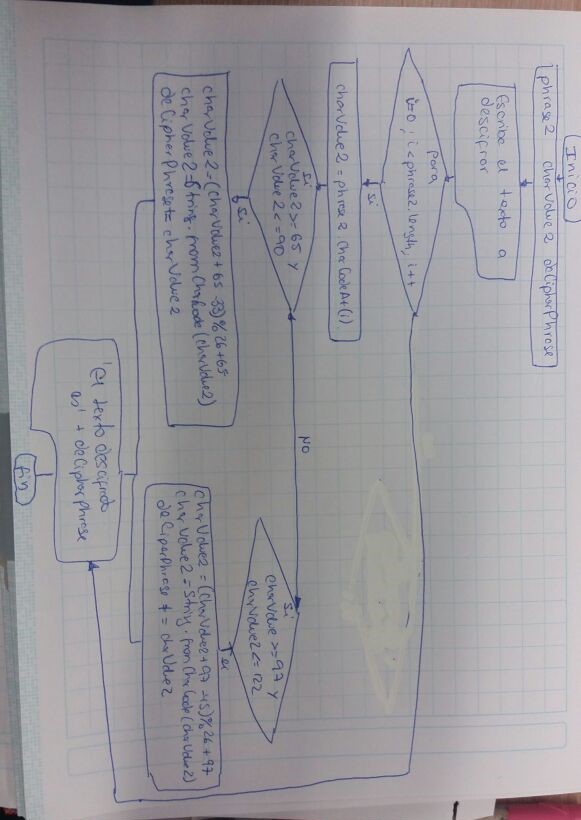 Inicio
phrase2 charValue2 deCipherPhrase
Escribe el texto a
descifrar
para
i=0, i<phrase2.length, i++
Si
charValue2 = phrase2.charCodeAt(i)
Si
charValue2 >= 65 y
charValue2 <= 90
NO
Si
charValue >= 97 y
charValue2 <= 122
Si
charValue2 = (charValue2 + 65 - 33)%26+65
charValue2 = String.fromCharCode(charValue2)
deCipherPhrase += charValue2
charValue2 = (charValue2 + 97 - 45)%26+97
charValue2 = String.fromCharCode(charValue2)
deCiperPhrase += charValue2
"El texto descifrado
es" + deCipherphrase
Fin